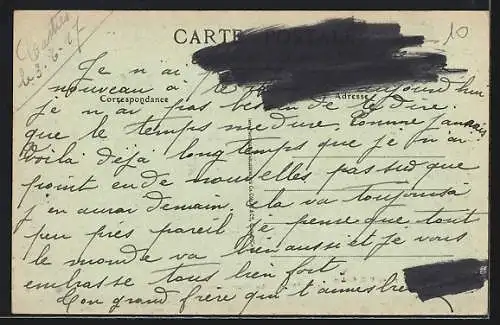 Chartres
le 3-6-17
CARTE POSTALE
10
Je n'ai
nouveau à te aujourd'hui
Correspondance
Adresse
je n'ai pas besoin de te dire
que le temps me dure comme jamais
Voilà déjà longtemps que je n'ai
point eu de nouvelles pas sur que
j'en aurai demain. cela va toujours a
peu près pareil je pense que tout
le monde va bien aussi et je vous
embrasse tous bien fort.
Ton grand frère qui t'aimes bien